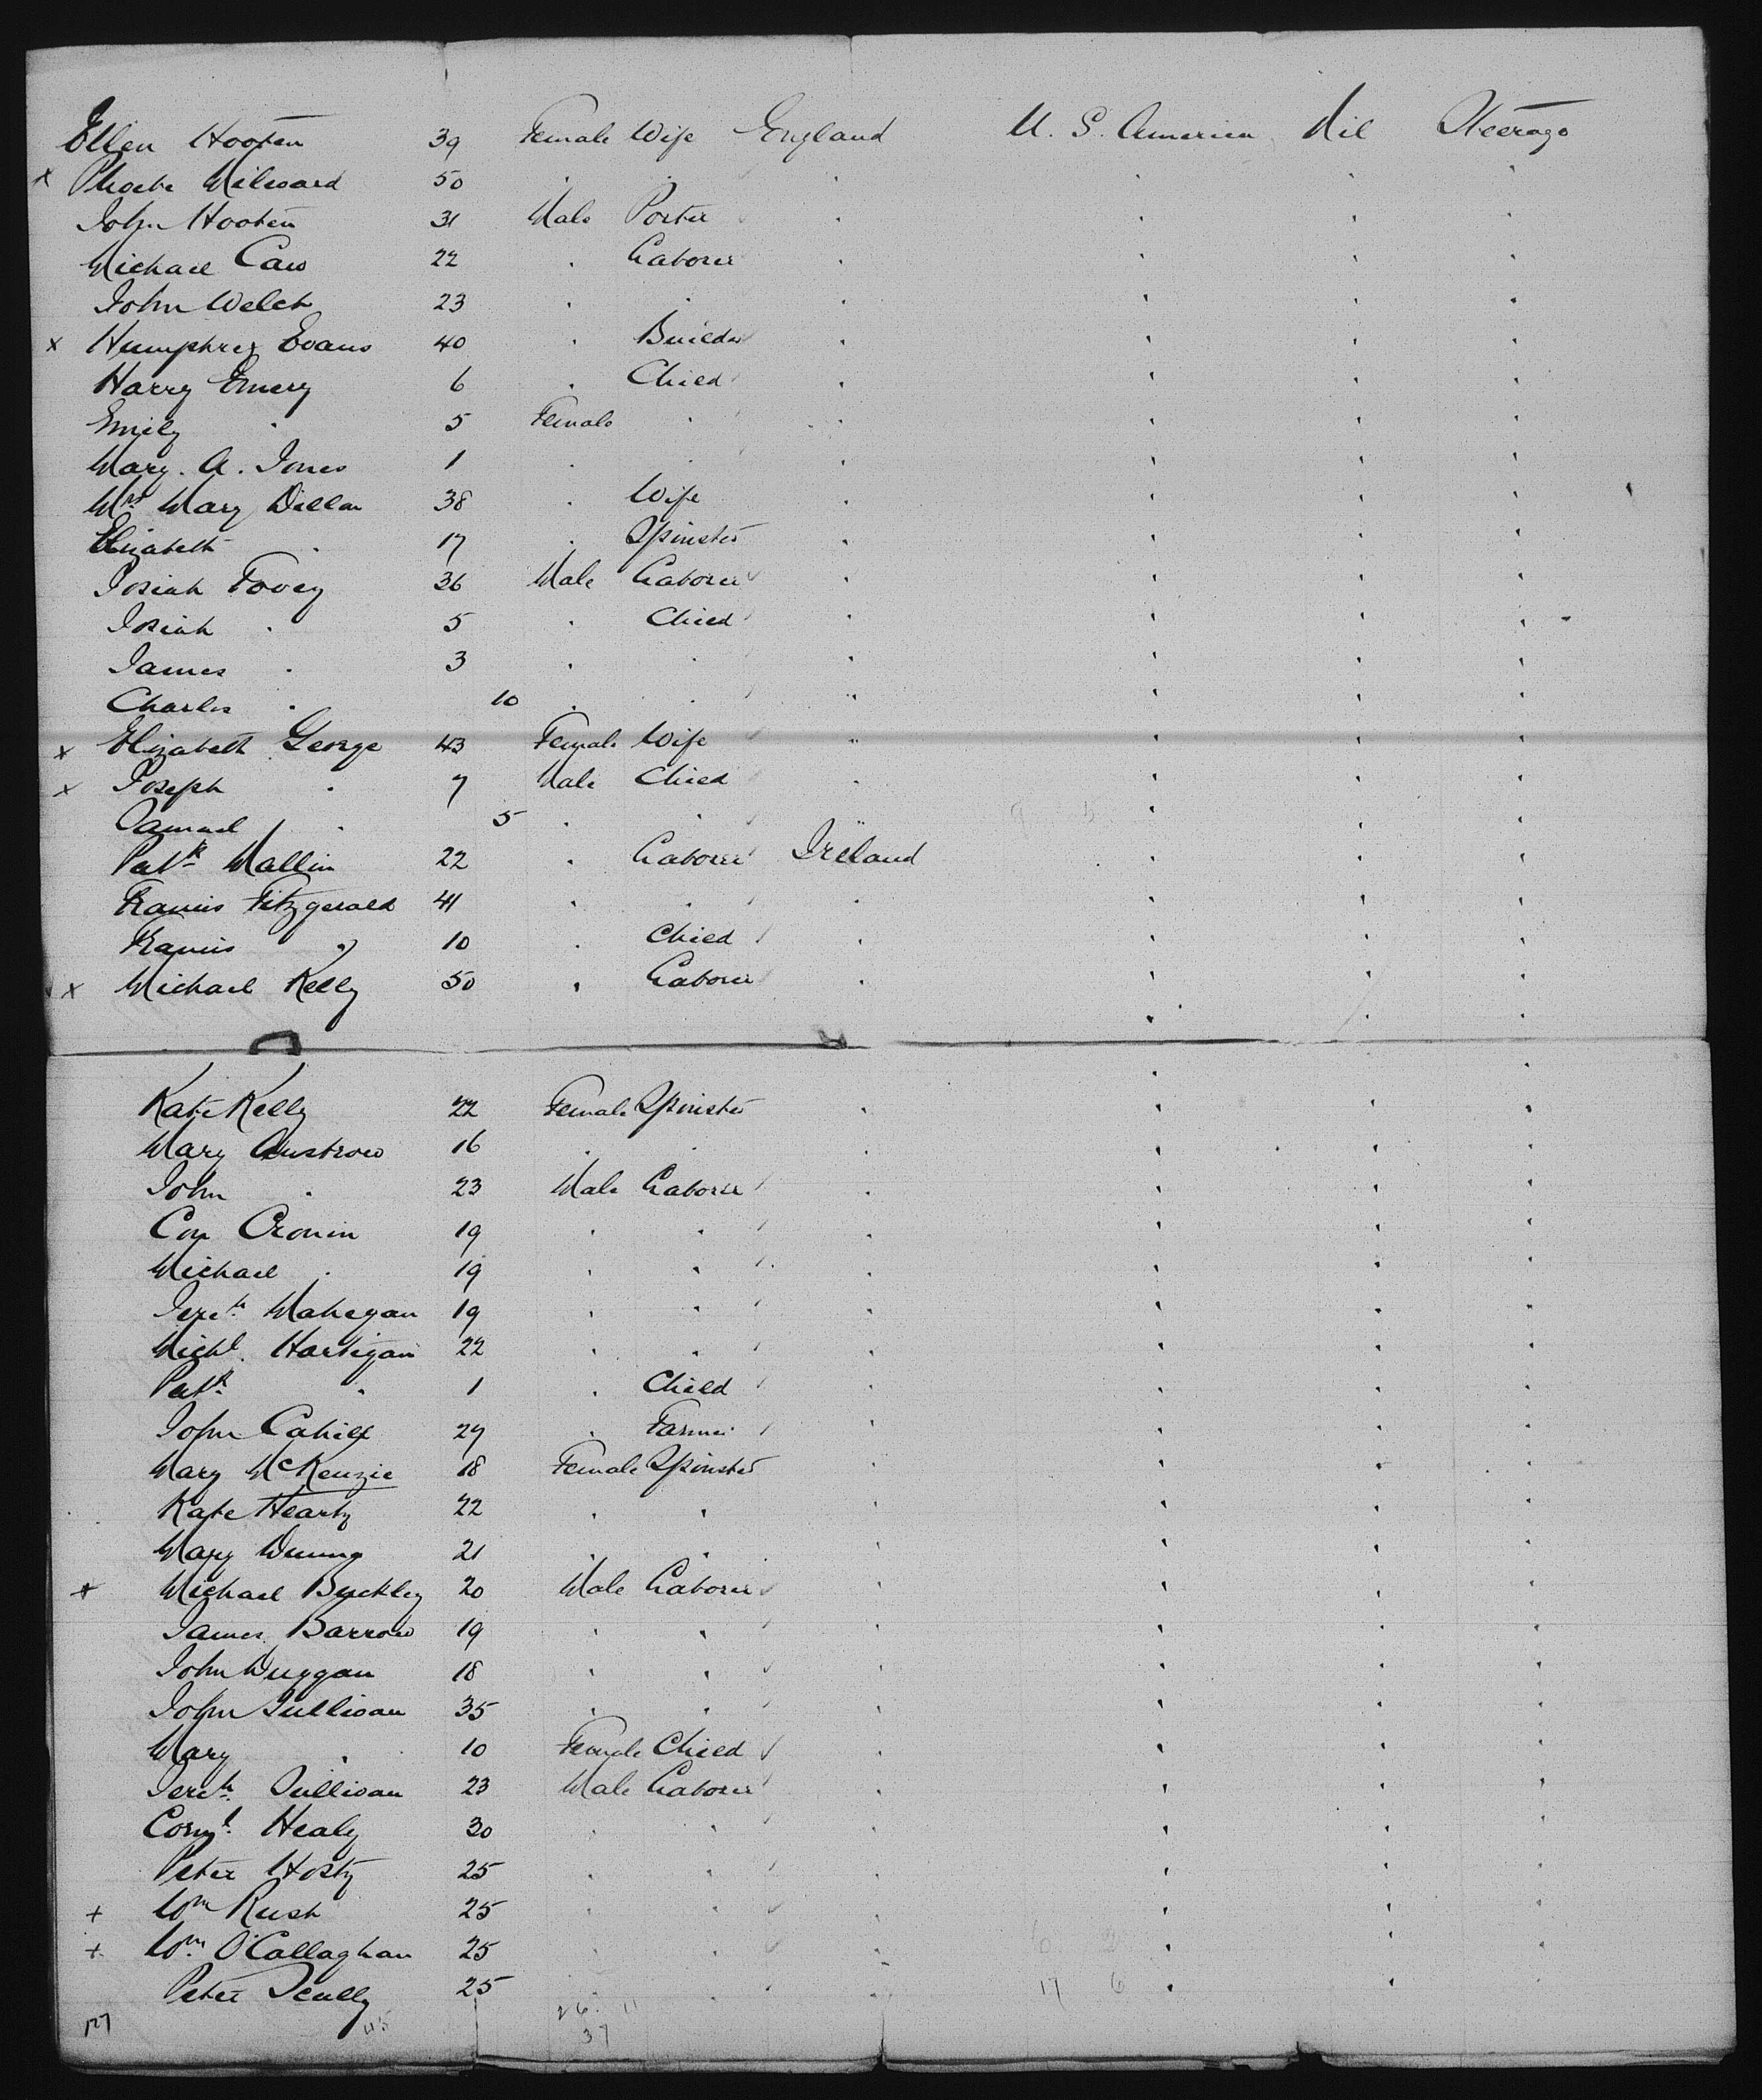 Ellen Hooten 39 Female Wife England U. S. America Nil Steerage
x Phoebe Milward 50 . . . . . .
John Hooten 31 Male Porter . . . .
Michael Caw 22 . Laborer . . . .
John Welch 23 . . . . . .
x Humphrey Evans 40 . Builder . . . .
Harry Emery 6 . Child . . . .
Emily . 5 Female . . . . .
Mary. A. Jones 1 . . . . . .
Mrs Mary Dillon 38 . Wife . . . .
Elizabeth . 17 . Spinster . . . .
Josiah Tovey 36 Male Laborer . . . .
Josiah . 5 . Child . . . .
James . 3 . . . . . .
Charles . 10 . . " . . .
x Elizabeth George 43 Female Wife " . . .
x Joseph . 7 Male Child . . . .
Samuel . 5 . . " . . .
Patk Mallin 22 . Laborer Ireland . . .
Francis Fitzgerald 41 . . . . . .
Francis " 10 . Child . . . .
x Michael Kelly 50 . Laborer . . . .
Kate Kelly 22 Female Spinster . . . .
Mary 16 . . . . . .
John . 23 Male Laborer . . . .
Con Cronin 19 . . . . . .
Michael . 19 . . . . . .
Jereh Mahegan 19 . . . . . .
Michl. Hartigan 22 . . . . . .
Patk . 1 . Child . . . .
John Cahill 27 . Farmer . . . .
Mary McKenzie 18 Female Spinster . . . .
Kate Hearty 22 . . . . . .
Mary 21 . . . . . .
x Michael Buckley 20 Male Laborer . . . .
James Barrow 19 . . . . . .
John Duggan 18 . . . . . .
John Sullivan 35 . . . . . .
Mary . 10 Female Child . . . .
Jereh Sullivan 23 Male Laborer . . . .
Corns. Healy 30 . . . . . .
Peter Hosty 25 . . . . . .
+ Wm Rush 25 . . . . . .
+ Wm O'Callaghan 25 . . . . . .
Peter Scully 25 . . . 17 6 . . .
45 26. 11
37